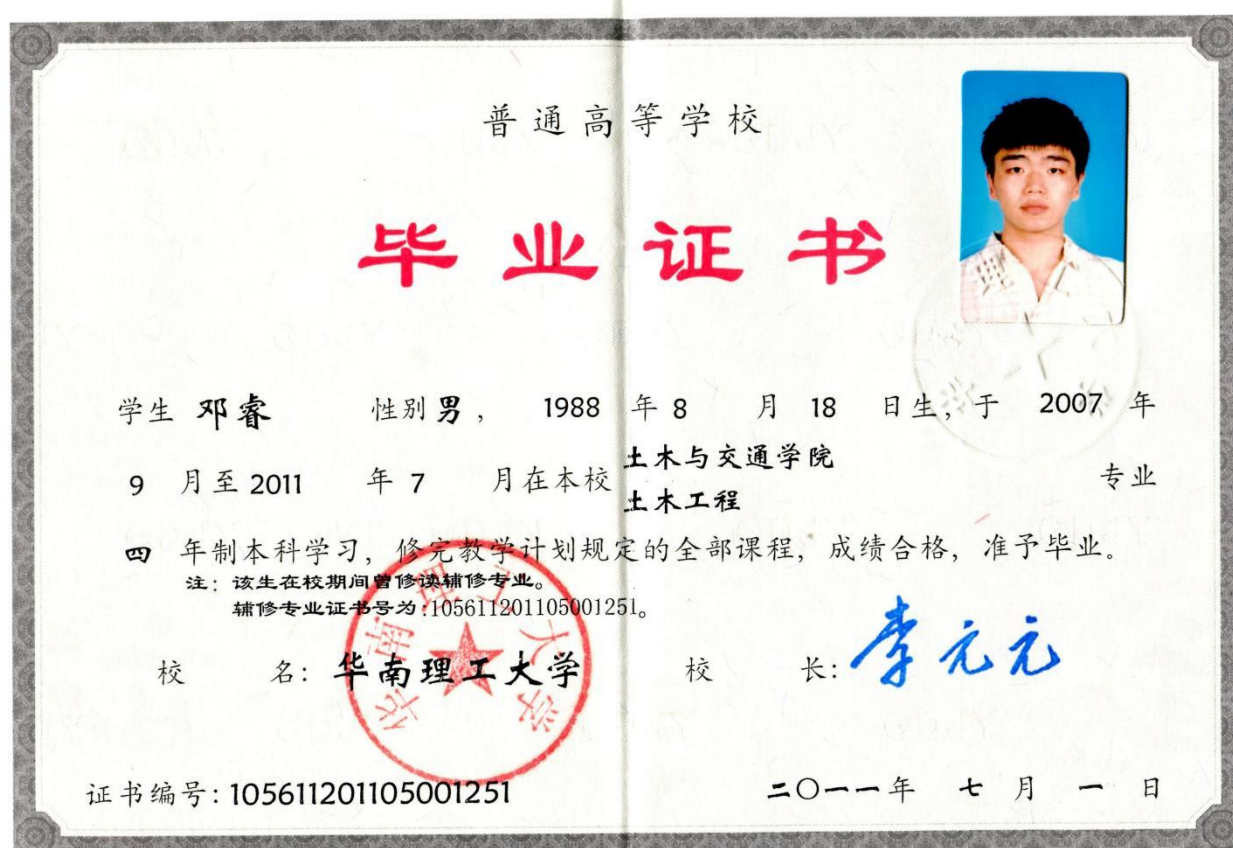 普通高等学校
毕业证书
学生 邓睿 性别 男， 1988 年 8 月 18 日生，于 2007 年
9 月至 2011 年 7 月在本校 土木与交通学院
土木工程 专业
四 年制本科学习，修完教学计划规定的全部课程，成绩合格，准予毕业。
注：该生在校期间曾修读辅修专业。
辅修专业证书号为：105611201105001251。
校 名：华南理工大学 校 长：李元元
华南理工大学
证书编号：105611201105001251 二〇一一年 七 月 一 日